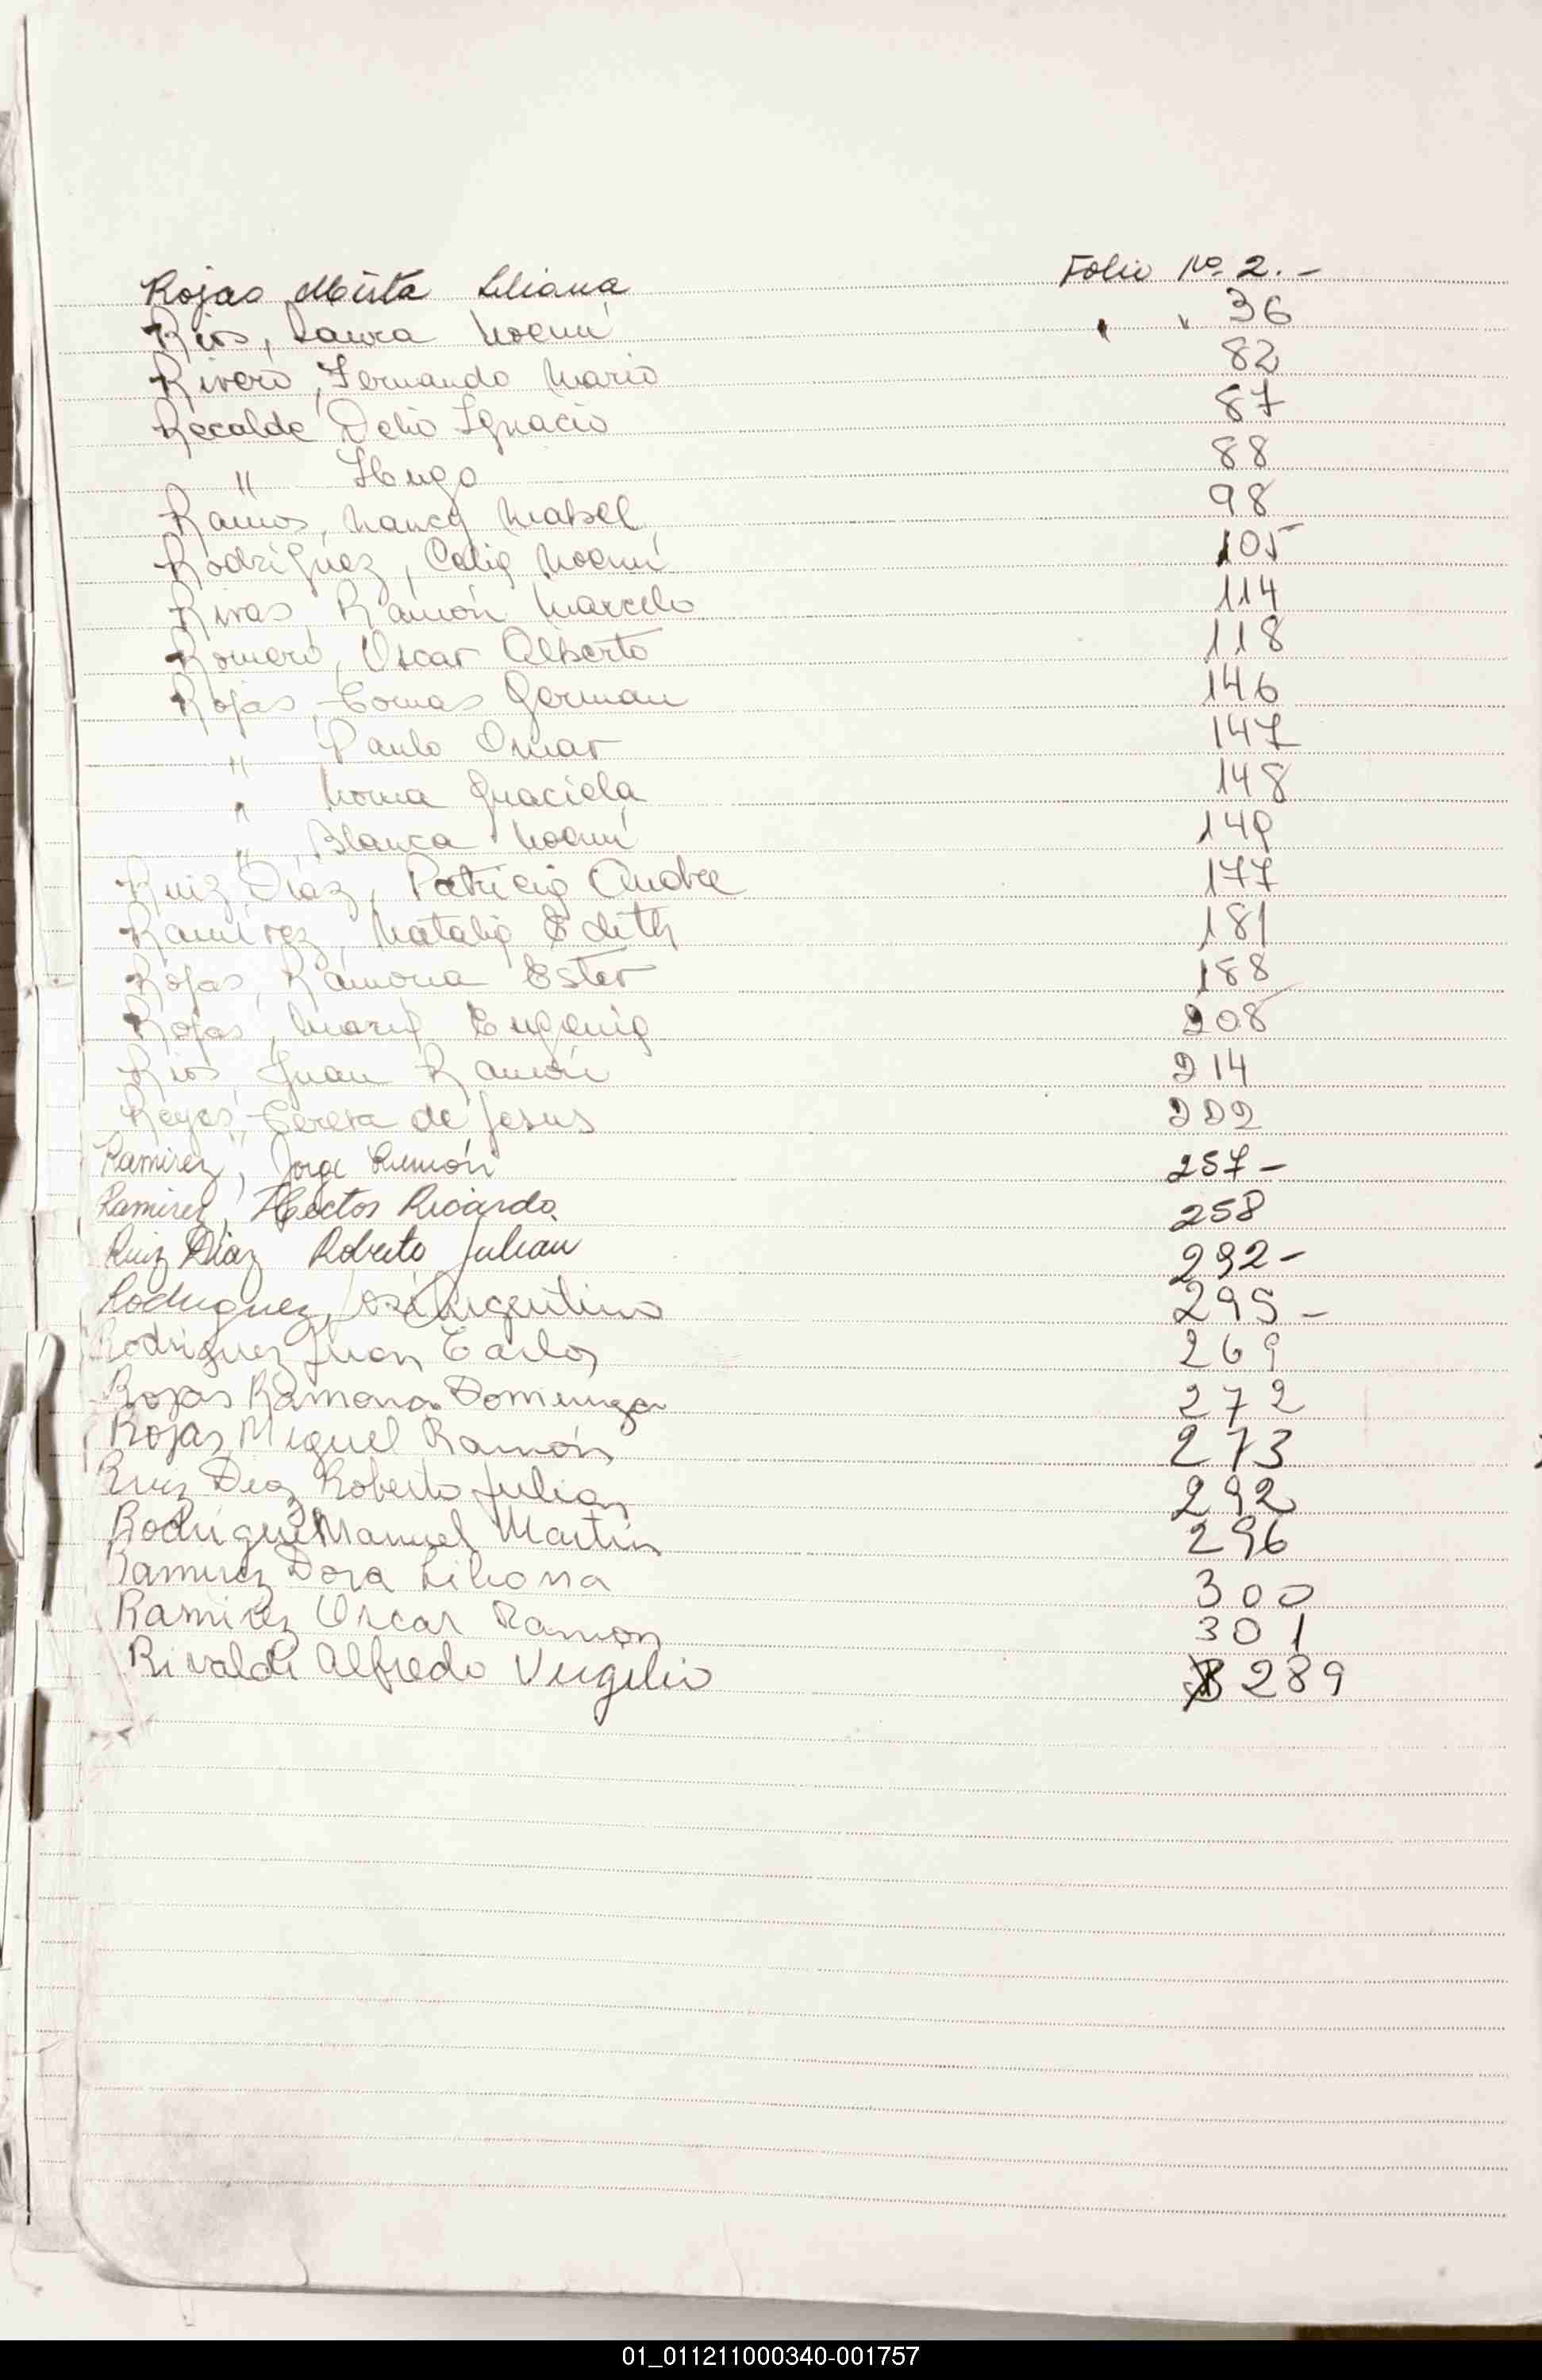 Rojas Mirta Liliana Folio No. 2.-
Rios, Laura Noemí " " 36
Rivero, Fernando Mario 82
Recalde Delio Ignacio 87
" Hugo 88
Ramos, Nancy Mabel 98
Rodriguez, Celia Noemí 105
Rivas, Ramón Marcelo 114
Romero, Oscar Alberto 118
Rojas, Tomas German 146
" Paulo Omar 147
" Norma Graciela 148
" Blanca Noemí 149
Ruiz Diaz, Patricia Andrea 177
Ramírez, Natalia Edith 181
Rojas, Ramona Ester 188
Rojas, María Eugenia 208
Rios, Juan Ramón 214
Reyes, Teresa de Jesus 222
Ramirez, Jorge Ramón 257-
Ramirez, Hector Ricardo 258
Ruiz Diaz Roberto Julian 292-
Rodriguez, José Argentino 295-
Rodriguez Juan Carlos 269
Rojas Ramona Dominga 272
Rojas Miguel Ramón 273
Ruiz Diaz Roberto Julian 292
Rodriguez Manuel Martin 296
Ramirez Dora Liliana 300
Ramirez Oscar Ramon 301
Rivaldi Alfredo Virgilio 289
01_011211000340-001757